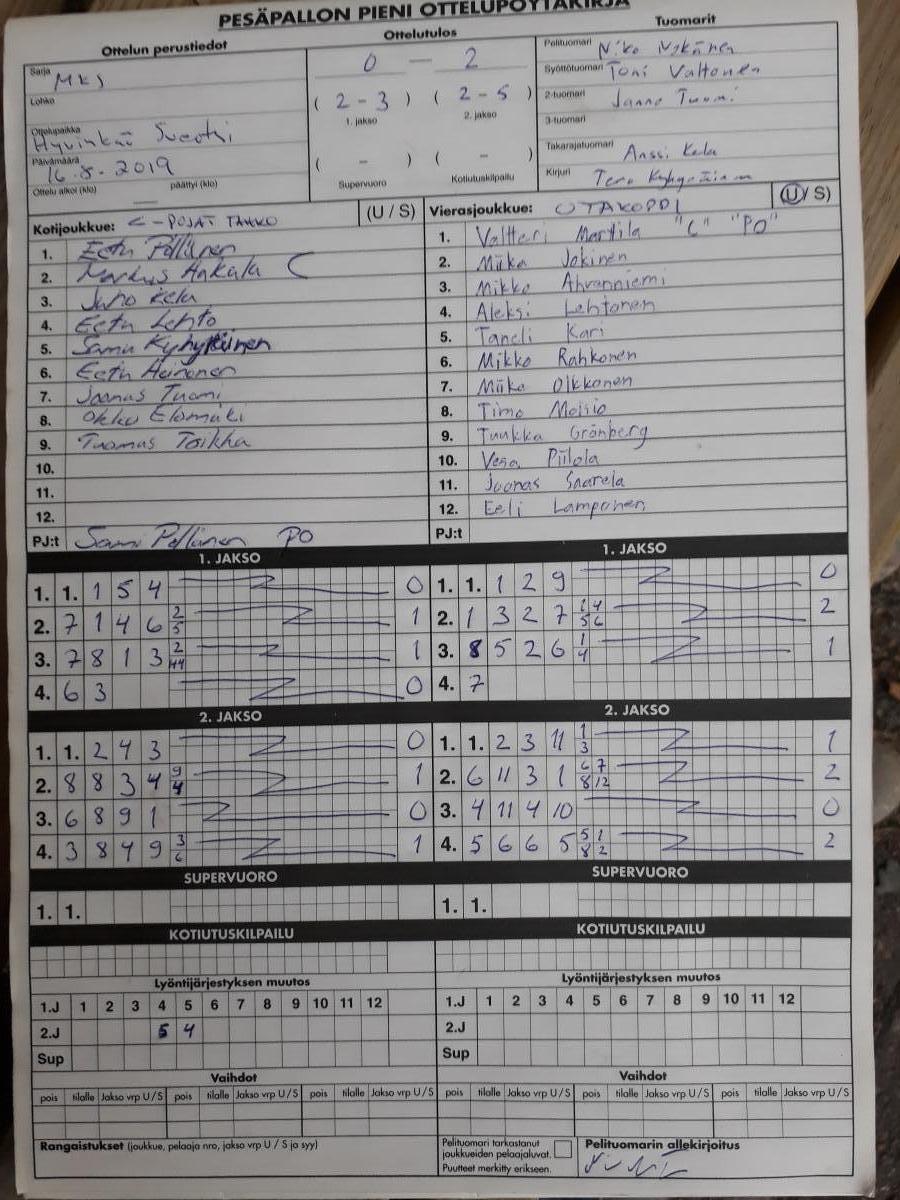 PESÄPALLON PIENI OTTELUPÖYTÄKIRJA
Ottelun perustiedot
Ottelutulos
Tuomarit
Sarja MKS
Lohko
Ottelupaikka Hyvinkää
Päivämäärä 16.8.2019
Ottelu alkoi (klo) päättyi (klo)
0 — 2
( 2 - 3 ) ( 2 - 5 )
1. jakso 2. jakso
( - ) ( - )
Supervuoro Kotiutuskilpailu
Pelituomari Niko Nykänen
Syöttötuomari Toni Valtonen
2-tuomari Janne Tuomi
3-tuomari
Takarajatuomari Anssi Kela
Kirjuri Tero
Kotijoukkue: C-POJAT TAHKO (U / S)
1. Eetu Pöllänen
2. Markus Hakala C
3. Juho Kela
4. Eetu Lehto
5. Samu Kyhyräinen
6. Eetu Heinonen
7. Joonas Tuomi
8. Okku Elomäki
9. Tuomas Toikka
10.
11.
12.
PJ:t Sami Pöllänen PO
Vierasjoukkue: OTAKOPPI (U / S)
1. Valtteri Marttila "C" "PO"
2. Miika Jokinen
3. Mikko Ahvenniemi
4. Aleksi Lehtonen
5. Taneli Kari
6. Mikko Rahkonen
7. Miika Oikkonen
8. Timo Moisio
9. Tuukka Grönberg
10. Vesa Piilola
11. Joonas Saarela
12. Eeli Lamponen
PJ:t
1. JAKSO
1. 1. 1 5 4 0
2. 7 1 4 6 2/5 1
3. 7 8 1 3 2/44 1
4. 6 3 0
1. JAKSO
1. 1. 1 2 9 0
2. 1 3 2 7 1/5 4/6 2
3. 8 5 2 6 1/4 1
4. 7
2. JAKSO
1. 1. 2 4 3 0
2. 8 8 3 4 9/4 1
3. 6 8 9 1 0
4. 3 8 4 9 3/6 1
2. JAKSO
1. 1. 2 3 11 1/3 1
2. 6 11 3 1 6/8 7/12 2
3. 4 11 4 10 0
4. 5 6 6 5 5/8 1/2 2
SUPERVUORO
1. 1.
SUPERVUORO
1. 1.
KOTIUTUSKILPAILU
KOTIUTUSKILPAILU
Lyöntijärjestyksen muutos
1.J 1 2 3 4 5 6 7 8 9 10 11 12
2.J 5 4
Sup
Lyöntijärjestyksen muutos
1.J 1 2 3 4 5 6 7 8 9 10 11 12
2.J
Sup
Vaihdot
pois tilalle Jakso vrp U/S pois tilalle Jakso vrp U/S pois tilalle Jakso vrp U/S
Vaihdot
pois tilalle Jakso vrp U/S pois tilalle Jakso vrp U/S pois tilalle Jakso vrp U/S
Rangaistukset (joukkue, pelaaja nro, jakso vrp U / S ja syy)
Pelituomari tarkastanut
joukkueiden pelaajaluvat.
Puutteet merkitty erikseen.
Pelituomarin allekirjoitus